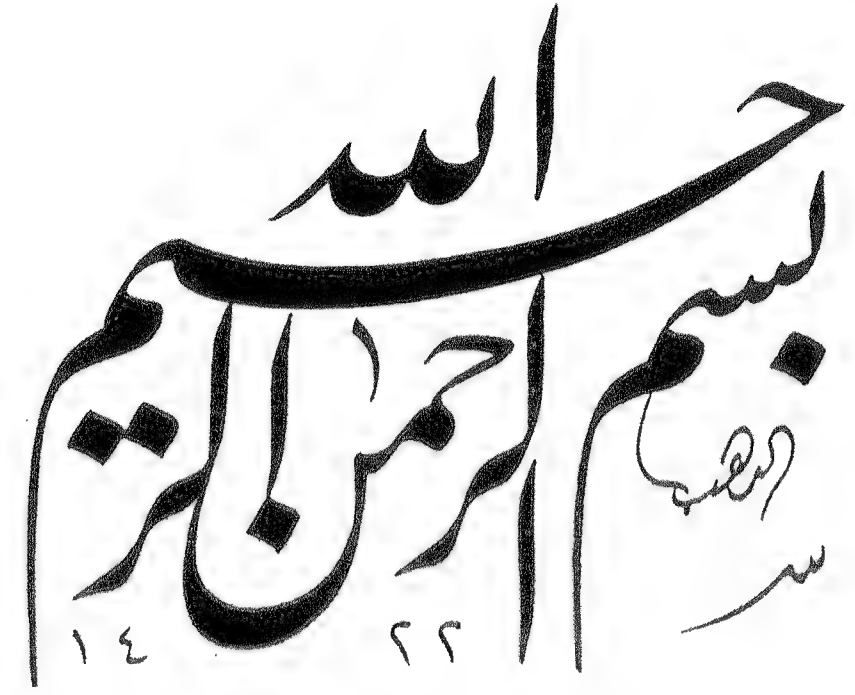 بسم الله الرحمن الرحيم
١٤ ٢٢